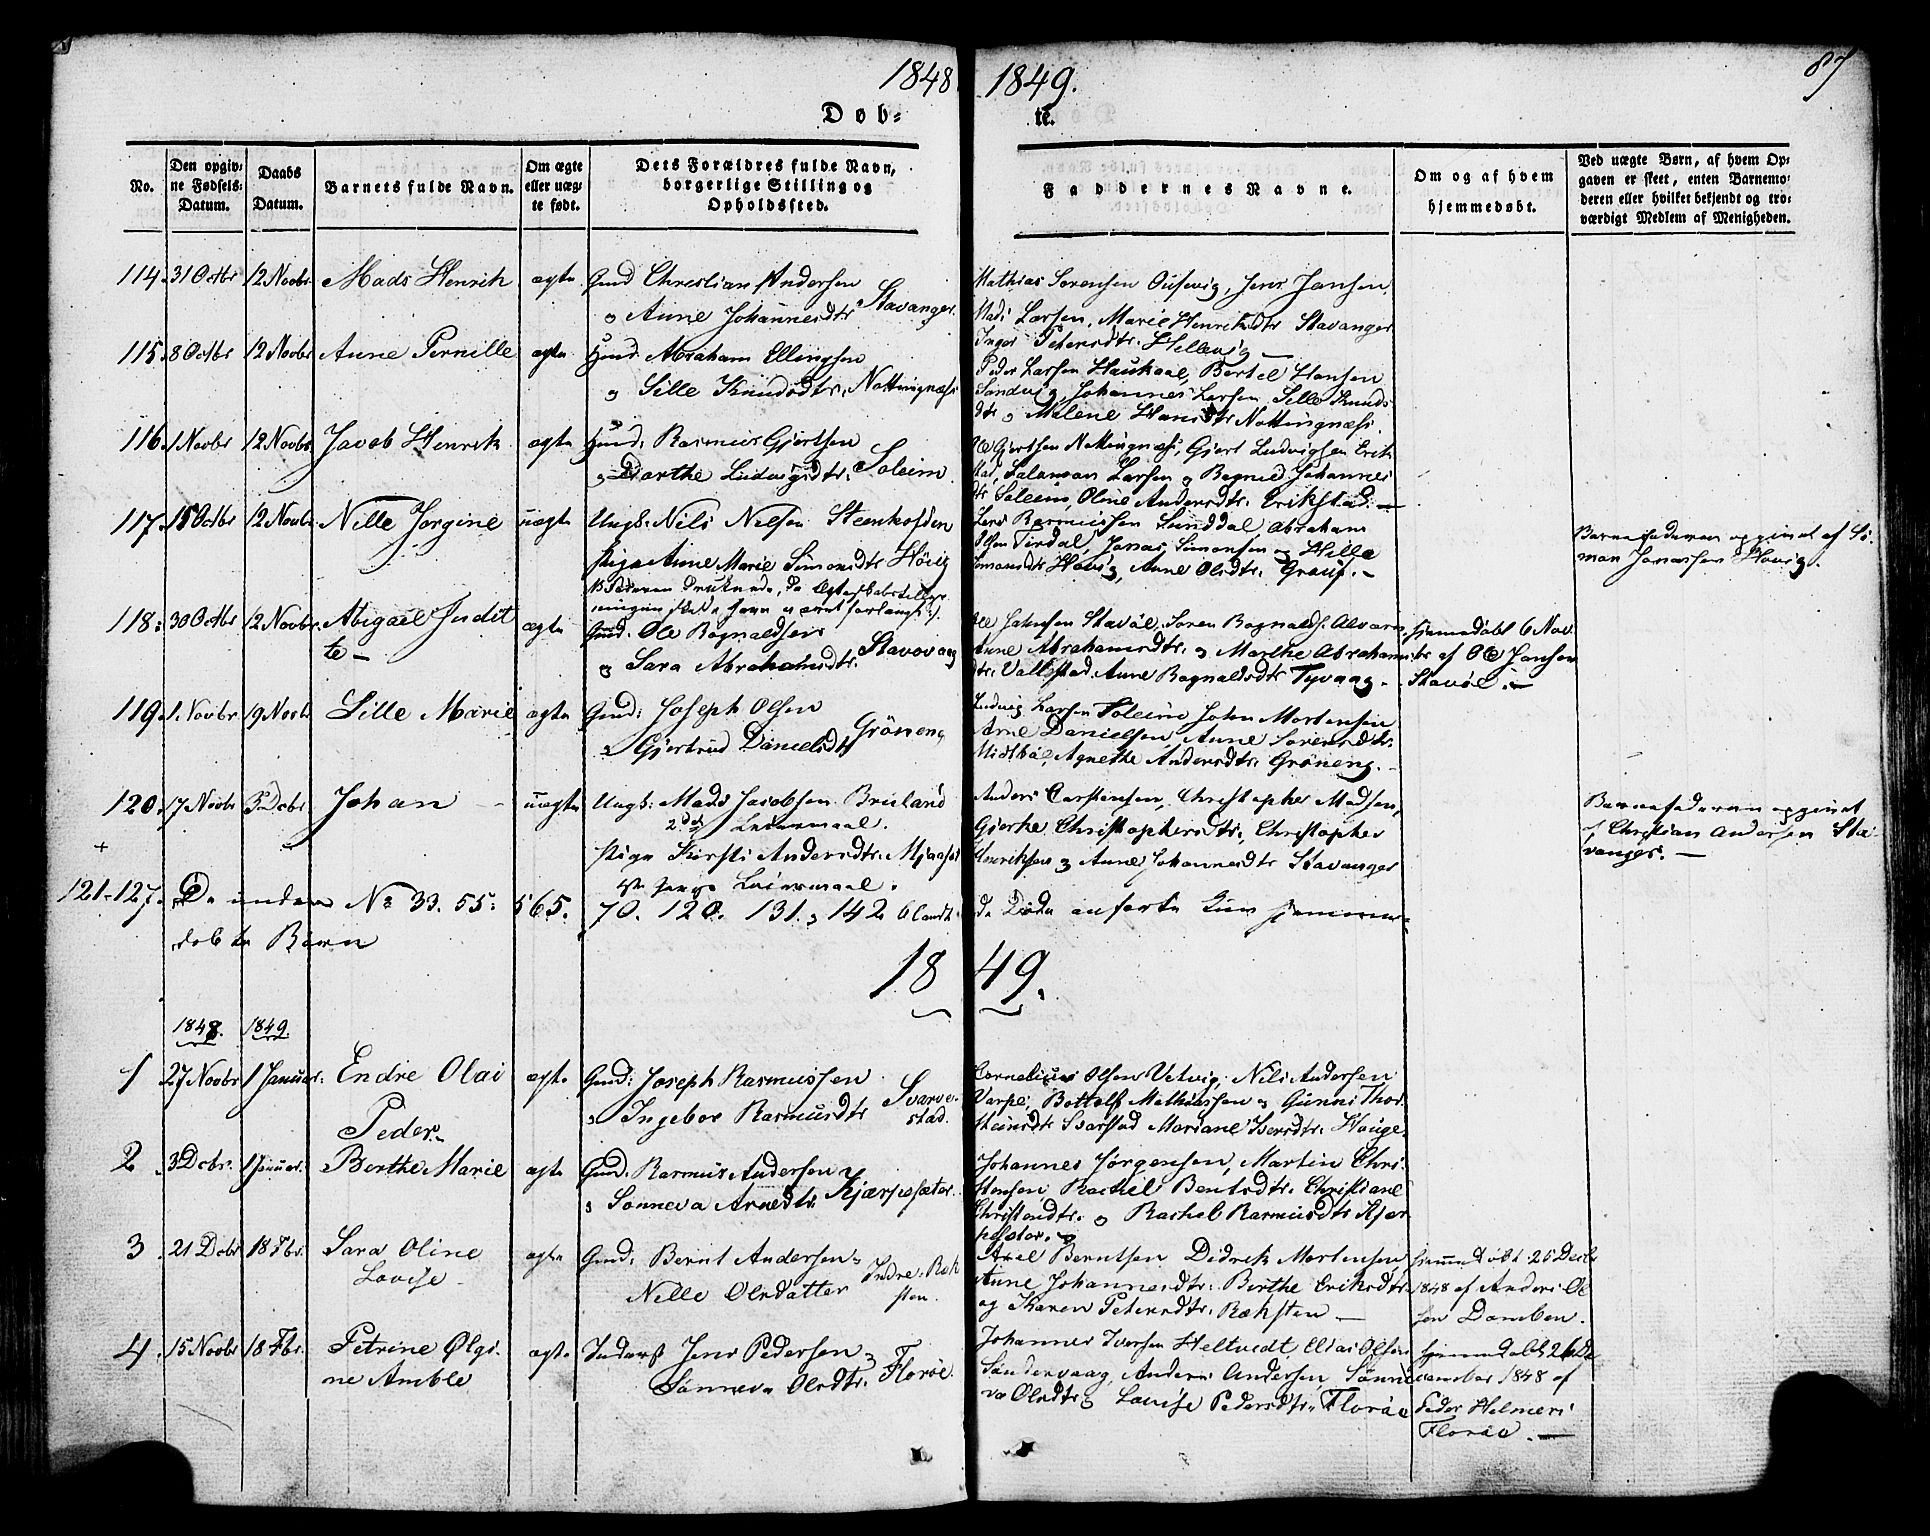 1848
1849.
87
Døb-
te.
No.
Den opgiv-
ne Fødsels-
Datum.
Daabs
Datum.
Barnets fulde Navn.
Om ægte
eller uæg-
te født.
Dets Forældres fulde Navn,
borgerlige Stilling og
Opholdssted.
Faddernes Navne.
Om og af hvem
hjemmedøbt.
Ved uægte Børn, af hvem Op-
gaven er skeet, enten Barnemo-
deren eller hvilket bekjendt og tro-
værdigt Medlem af Menigheden.
114. 31 Octbr 12 Novbr Mads Henrik ægte Gmd Christian Andersen
og Anne Johannesdtr Stavanger.
Mathias Sørensen Jens Jansen,
Mads Larsen, Marie Henriksdtr Stavanger
Inger Petersdtr. Hellevig —
115. 8 Octbr 12 Novbr Anne Pernille ægte Hmd. Abraham Ellingsen
og Sille Knudsdtr. Nottingnæss
Peder Larsen Haukaae, Bertel Hansen
Sandvig, Johannes Larsen, Sille Knuds
dtr og Malene Hansdtr Nottingnæss.
116. 1 Novbr 12 Novbr Jacob Henrik ægte Hmd: Rasmus Gjertsen
og Dorthe Ludvigsdtr. Soleim.
Ole Gjertsen Nottingnæss, Gjert Ludvigsen Erik
stad, Salamon Larsen og Ragnild Johannes
dtr Soleim, Oline Andersdtr. Erikstad. —
117. 15 Octbr 12 Novbr Nille Jorgine uægte Ungk: Nils Nilsen Steenhofden
Pige Anne Marie Simonsdtr Høvig
Jens Rasmussen Sunddal Abraham
Olsen Tirdal, Jonas Simonsen og Hille
Simonsdtr Høvig, Anne Olsdtr. —
Barnefaderen opgivet af Si-
mon Jonassen Høvig.
118. 30 Octbr 12 Novbr. Abigael Judit
te — ægte Gmd. Ole Ragnaldsen
og Sara Abrahamsdtr. Stavøvaag
Ole Jahnsen Stavøe, Søren Ragnalds.
Anne Abrahamsdtr. og Marthe Abrahams
dtr. Vallestad, Anne Ragnaldsdtr Tyvaag —
hjemmedøbt 6 Nov.
br af Ole Jansen
Stavøe. —
119. 1 Novbr 19 Novbr Sille Marie ægte Gmd: Joseph Olsen
og Gjertrud Danielsdtr Grøneng
Ludvig Larsen Soleim John Mortensen
Arne Danielsen Anne Sørensdtr.
Midtbøe, Agnethe Andersdtr. Grøneng. —
120. 17 Novbr 3 Dcbr Johan — uægte Ungk: Mads Jacobsen Bruland
2det Leiermaal.
Pige Kirsti Andersdtr.
Leiermaal.
Anders Carstensen, Christopher Madsen,
Gjerke Christophersdtr. Christopher
Henriksen og Anne Johannesdtr Stavanger
Barnefaderen opgivet
af Christian Andersen Sta-
vanger. —
+
121-127. De under No 33. 55. 565. 70. 120. 131. og 142 blandt
de Døde anførte kun hjemme-
døbte Børn
1849.
1848. 1849.
1 27 Novbr 1 Januar. Endre Olai
Peder. ægte Gmd: Joseph Rasmussen
og Ingebor Rasmusdtr Svarve-
stad.
Cornelius Olsen Vetvig, Nils Andersen
Varpe, Bottolf Mathiassen og Gunni Thor
steinsdtr Svarstad Mariane Iversdtr. Hauge.
2 3 Dcbr. 1 Januar. Berthe Marie ægte Gmd: Rasmus Andersen
og Sønneva Arnedtr. Kjærpesæter.
Johannes Jørgensen, Martin Chris
tensen Rachel Bentsdtr. Christiane
Christensdtr. og Rachel Rasmusdtr Kjer
pesæter.
3 21 Dcbr 18 Fbr. Sara Oline
Lovise — ægte Gmd: Bernt Andersen
Nille Olsdatter Indre Ræk
sten.
Axel Berntsen Didrik Mortensen,
Anne Johannesdtr. Birthe Eriksdtr.
og Karen Petersdtr. Ræksten —
hjemmedøbt 26 Decbr
1848 af Anders Ol
sen Domben.
4. 15 Novbr 18 Fbr. Petrine Olgi
ne Amble ægte Inderst Jens Pedersen og
Sønneva Olsdtr. Florøe.
Johannes Iversen Heltvedt, Elias Olsen
Søndervaag, Anders Andersen Sønne
va Olsdtr og Lovise Pedersdtr. Florøe
hjemmedøbt 26 De
cember 1848 af
Peder Helmers
Florøe. —